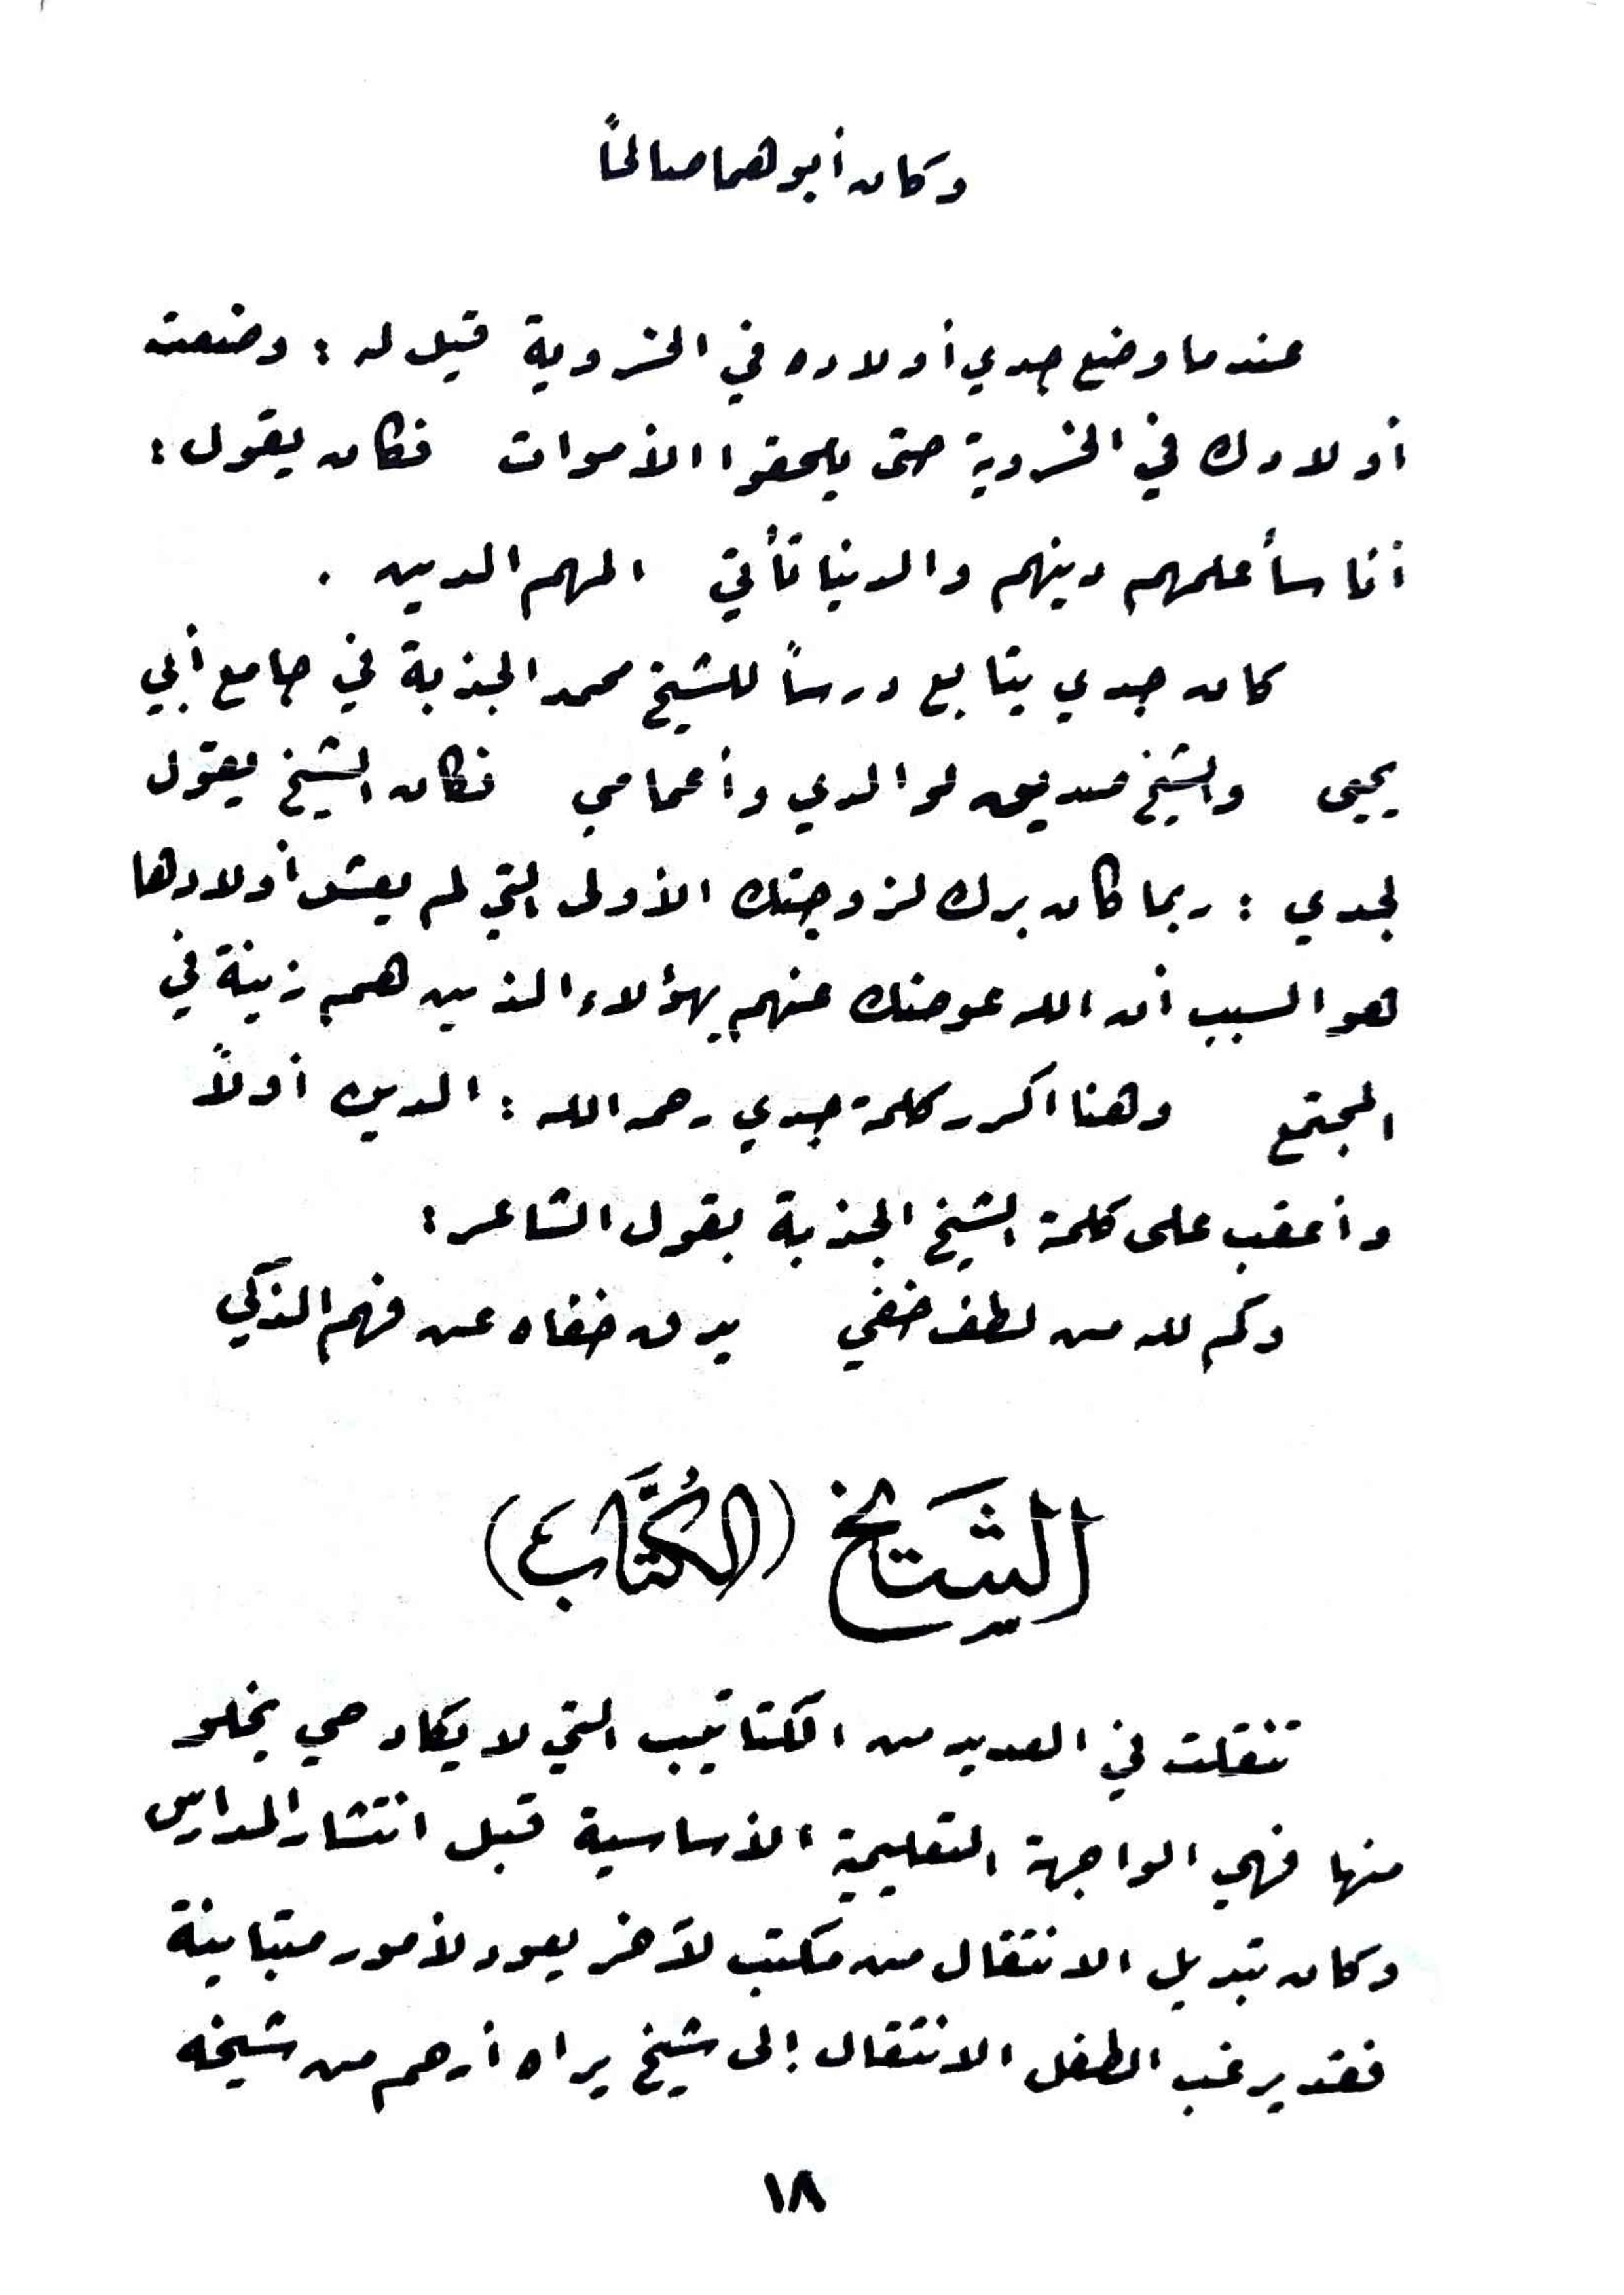 وكان أبوهما صالحاً
عندما وضع جدي أولاده في الخسروية قيل له : وضعت
أولادك في الخسروية حتى يلحقوا الأموات فكان يقول :
أنا سأعلمهم دينهم والدنيا تأتي المهم الدين .
كان جدي يتابع درساً للشيخ محمد الجذبة في جامع أبي
يحيى والشيخ صديق لوالدي وأعمامي فكان الشيخ يقول
لجدي : ربما كان برك لزوجتك الأولى التي لم يعش أولادها
هو السبب أن الله عوضك عنهم بهؤلاء الذين هم زينة في
المجتمع وهنا أكرر كلمة جدي رحمه الله : الدين أولاً
وأعقب على كلمة الشيخ الجذبة بقول الشاعر :
وكم لله من لطف خفي يدق خفاه عن فهم الذكي
الشيخ (الكُتَّاب)
تنقلت في العديد من الكتاتيب التي لا يكاد حي يخلو
منها فهي الواجهة التعليمية الأساسية قبل انتشار المدارس
وكان تبديل الانتقال من مكتب لآخر يعود لأمور متباينة
فقد يرغب الطفل الانتقال إلى شيخ يراه أرحم من شيخه
١٨